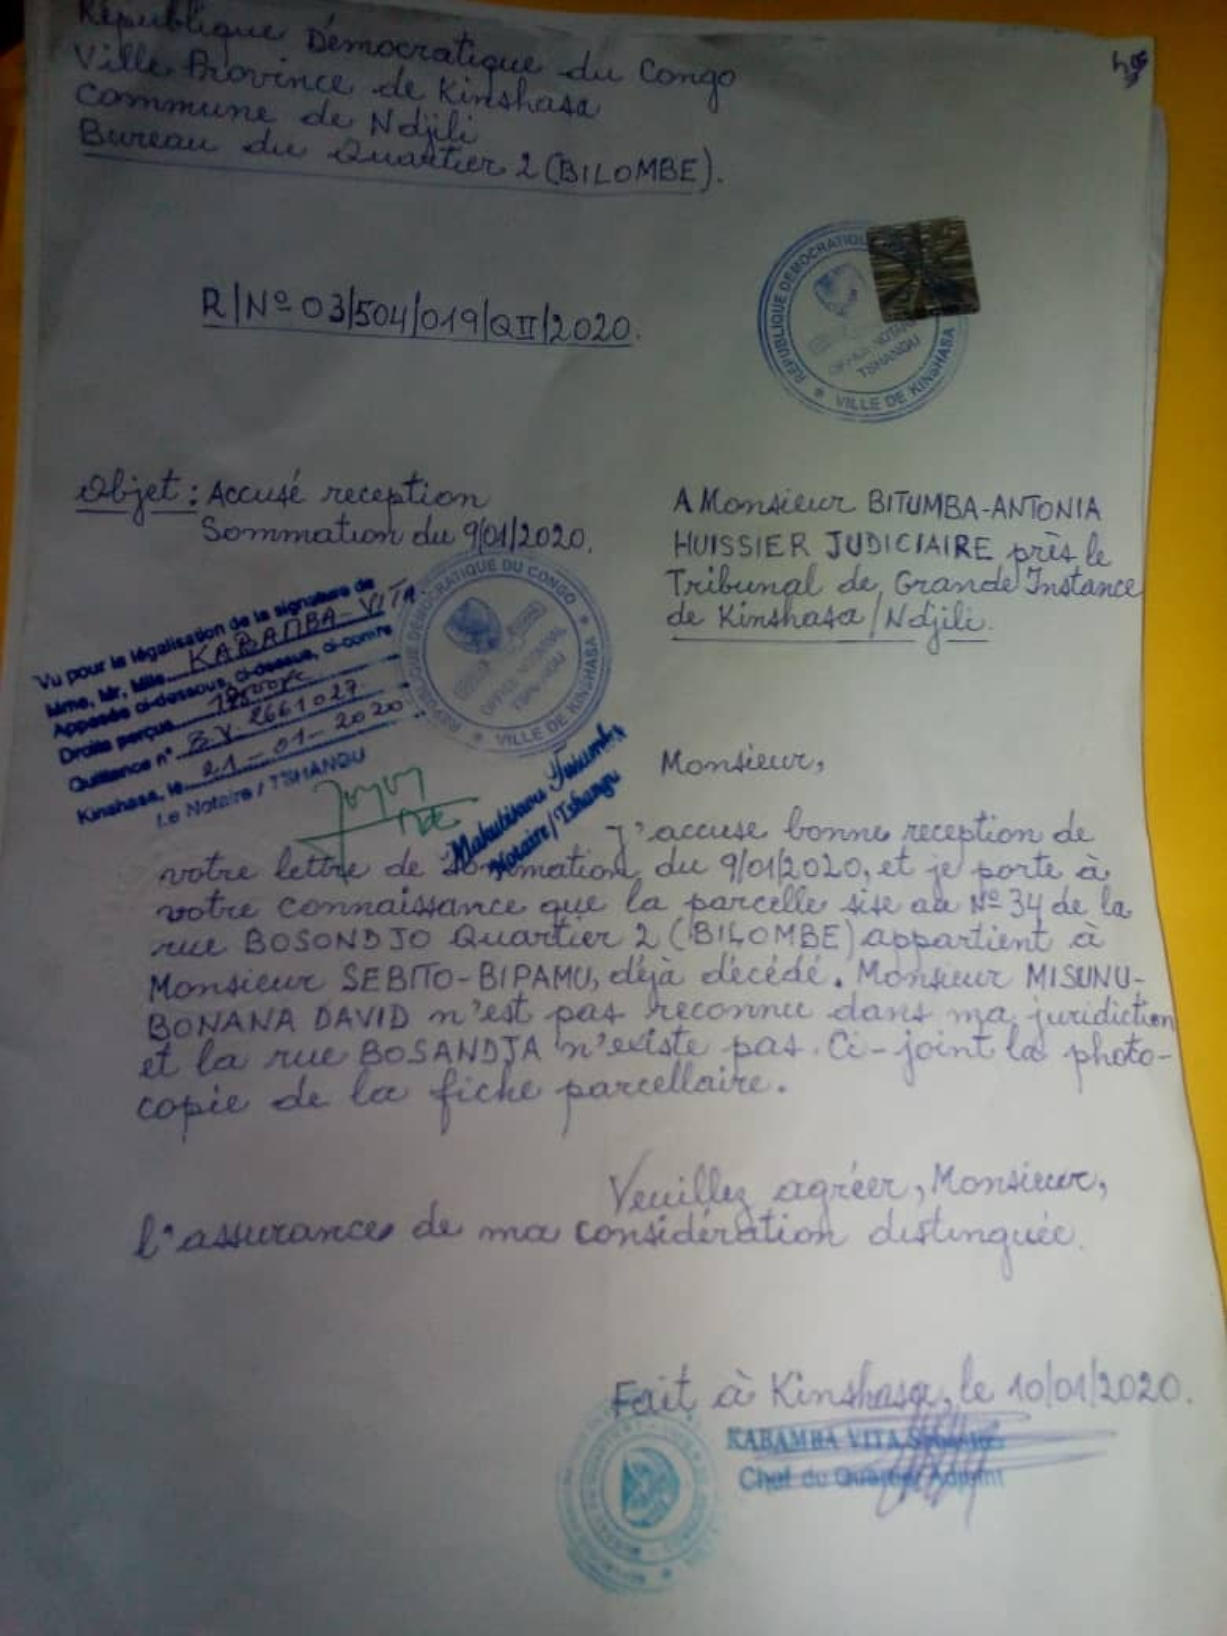 République Démocratique du Congo
Ville Province de Kinshasa
Commune de Ndjili
Bureau du Quartier 2 (BILOMBE).
R/Nº 03/504/019/QII/2020.
RÉPUBLIQUE DÉMOCRATIQUE
TSHANGU
VILLE DE KINSHASA
Objet : Accusé reception
Sommation du 9/01/2020.
A Monsieur BITUMBA-ANTONIA
HUISSIER JUDICIAIRE près le
Tribunal de Grande Instance
de Kinshasa/Ndjili.
Vu pour la légalisation de la signature de
Mme, Mr, Mlle KABAMBA-VITA
Apposée ci-dessous, ci-dessus, ci-contre
Droits perçus
Quittance nº B.V. 2661027
Kinshasa, le 21-01-2020
Le Notaire / TSHANGU
RÉPUBLIQUE DÉMOCRATIQUE DU CONGO
OFFICE NOTARIAL
TSHANGU
VILLE DE KINSHASA
Notaire/Tshangu
Monsieur,
J'accuse bonne reception de
votre lettre de Sommation du 9/01/2020, et je porte à
votre connaissance que la parcelle sise au Nº 34 de la
rue BOSONDJO Quartier 2 (BILOMBE) appartient à
Monsieur SEBITO-BIPAMU, déjà décédé. Monsieur MISUNU-
BONANA DAVID n'est pas reconnu dans ma juridiction
et la rue BOSANDJA n'existe pas. Ci-joint la photo-
copie de la fiche parcellaire.
Veuillez agréer, Monsieur,
l'assurance de ma considération distinguée.
Fait à Kinshasa, le 10/01/2020.
KABAMBA VITA
Chef du Quartier Adjoint